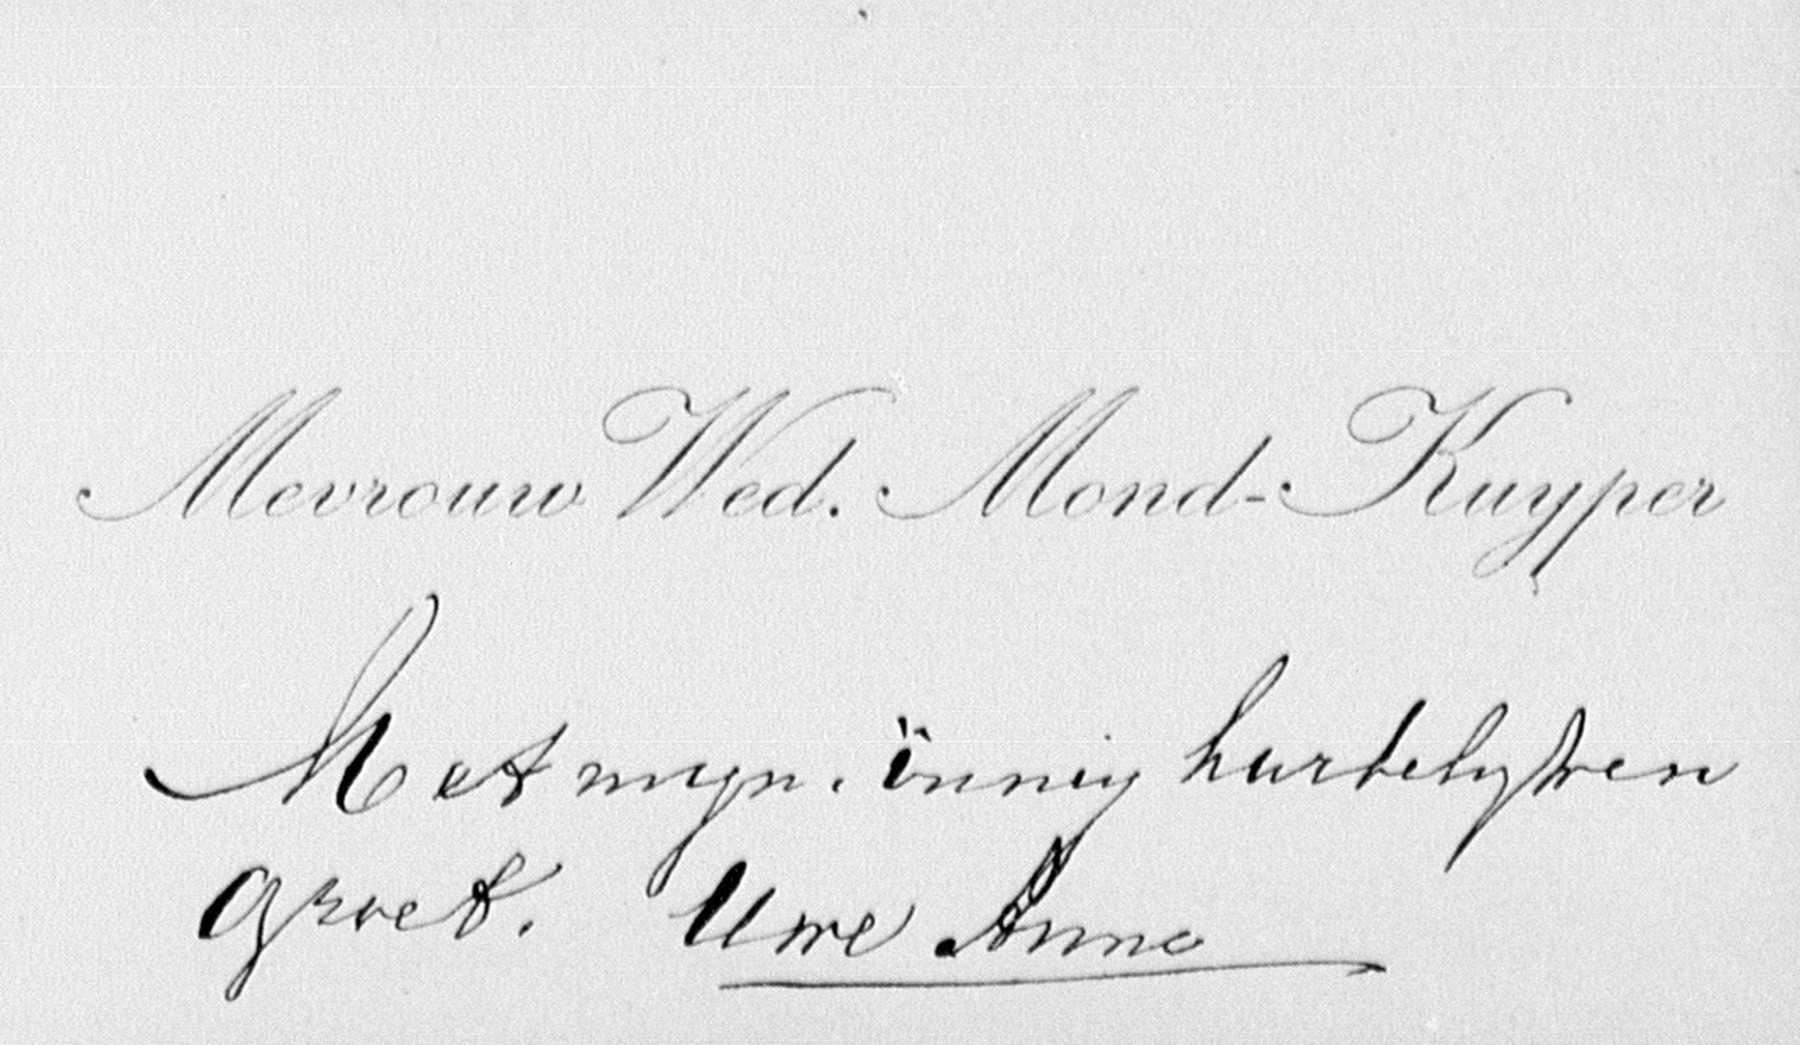 Mevrouw Wed. Mond-Kuyper
Met myn innig hartelyken
groet. Uwe Anna